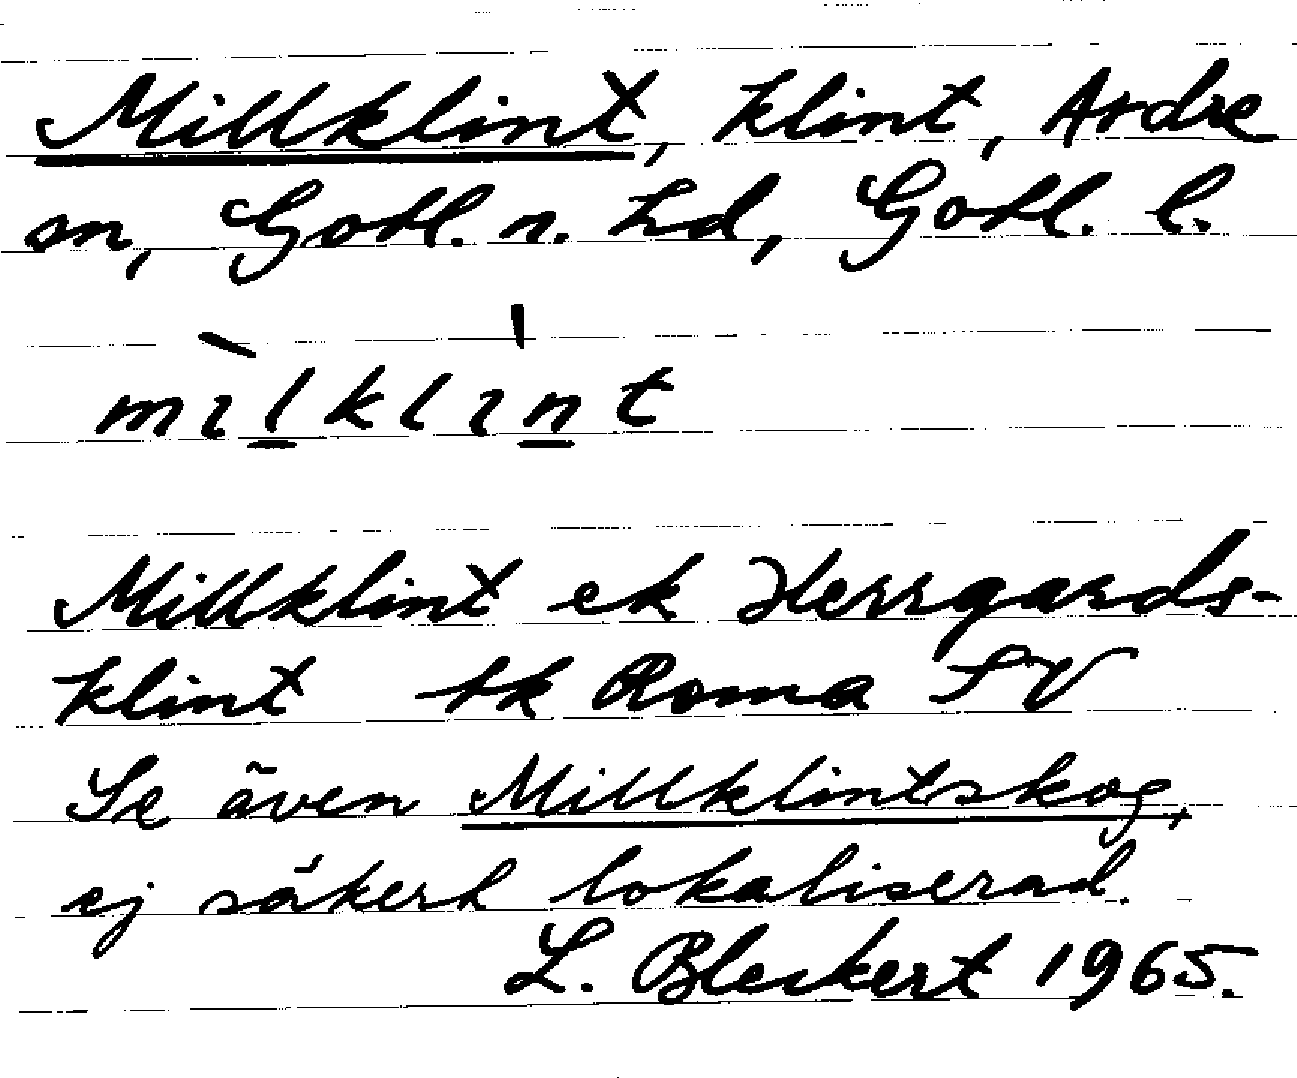 Millklint, klint, Ardre
sn, Gotl. n. hd, Gotl. l.
mìlklın̍t
Millklint ek Herrgards-
klint tk Roma SV
Se även Millklintskog,
ej säkert lokaliserad.
L. Bleckert 1965.